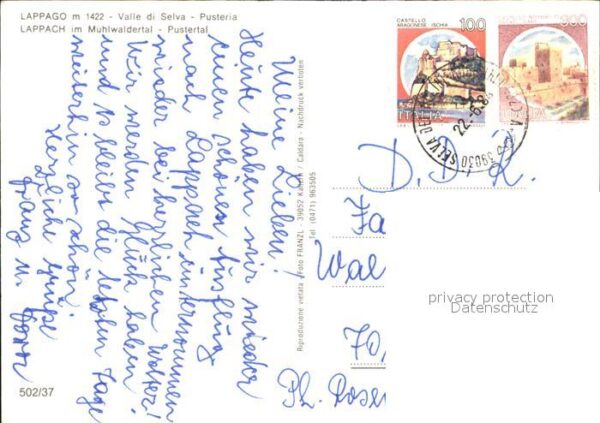 LAPPAGO m 1422 - Valle di Selva - Pusteria
LAPPACH im Mühlwaldertal - Pustertal
Meine Lieben!
Heute haben wir wieder
einen schönen Ausflug
nach Lappach unternommen
wieder bei herrlichen Wetter!
Wir werden Glück haben
und so bleibt die letzten Tage
weiterhin so schön.
Herzliche Grüße
Franz u.
502/37
Riproduzione vietata / Foto FRANZL - 39052 Kaltern / Caldaro - Nachdruck verboten
Tel. (0471) 963505
CASTELLO
ARAGONESE - ISCHIA
100
ITALIA
300
ITALIA
39030 SELVA DEI
22-8-8
D. D. R.
Fa
Wal
70
privacy protection
Datenschutz